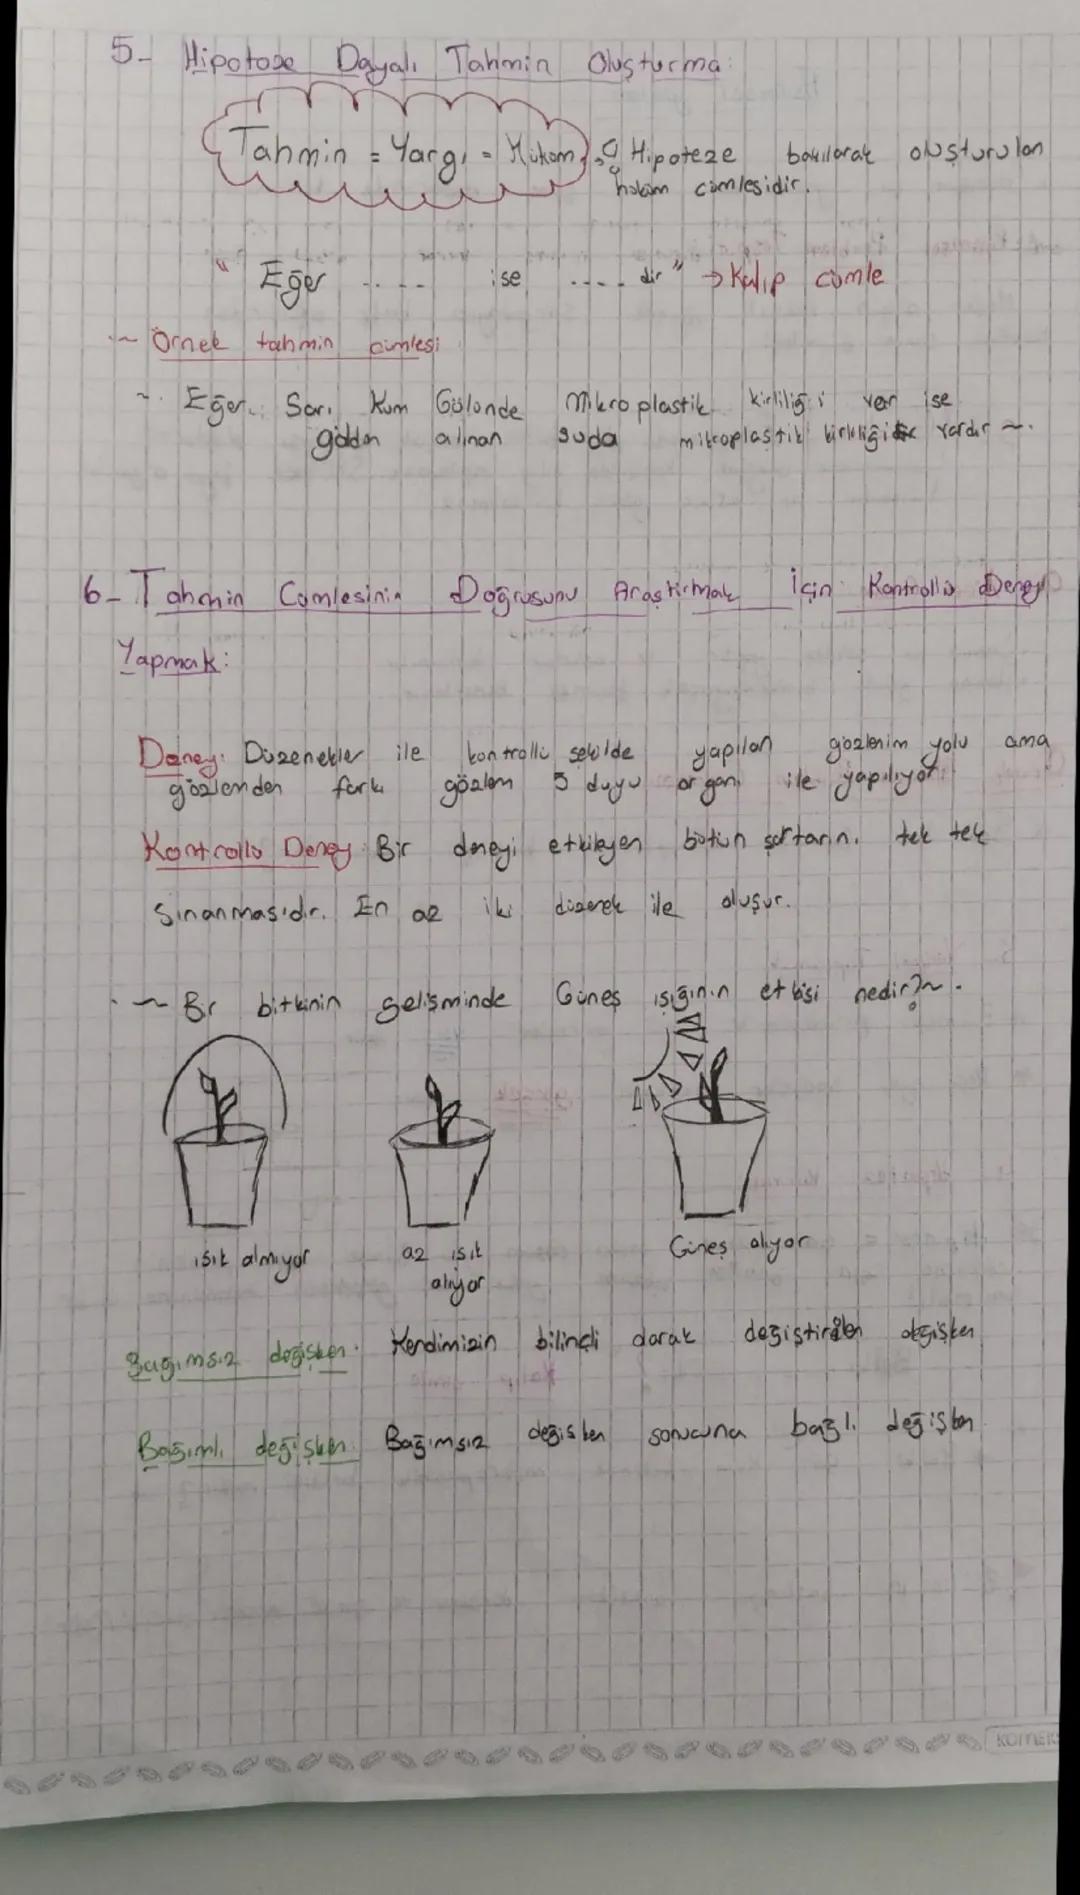 5- Hipoteze Dayalı Tahmin Oluşturma:
Tahmin = Yargı = Hüküm Hipoteze bakılarak oluşturulan
hüküm cümlesidir.
" Eğer ..... ise ..... dir " → Kalıp cümle
~ Örnek tahmin cümlesi
~ Eğer Sarı Kum Gölünde Mikroplastik kirliliği var ise
gölden alınan suda mikroplastik kirliliği vardır ~.
6- Tahmin Cümlesinin Doğrusunu Araştırmak İçin Kontrollü Deney
Yapmak:
Deney: Düzenekler ile kontrollü şekilde yapılan gözlenim yolu ama
gözlemden farkı gözlem 5 duyu organı ile yapılıyor.
Kontrollü Deney Bir deneyi etkileyen bütün şartarın tek tek
Sınanmasıdır. En az iki düzenek ile oluşur.
~ Bir bitkinin gelişminde Güneş ışığının etkisi nedir?~.
ışık almıyor
az ışık
alıyor
Güneş alıyor
Bağımsız değişken. Kendimizin bilinçli darak değiştirilen değişken
Bağımlı değişken. Bağımsız değişken sonucuna bağlı değişken
KOMEK